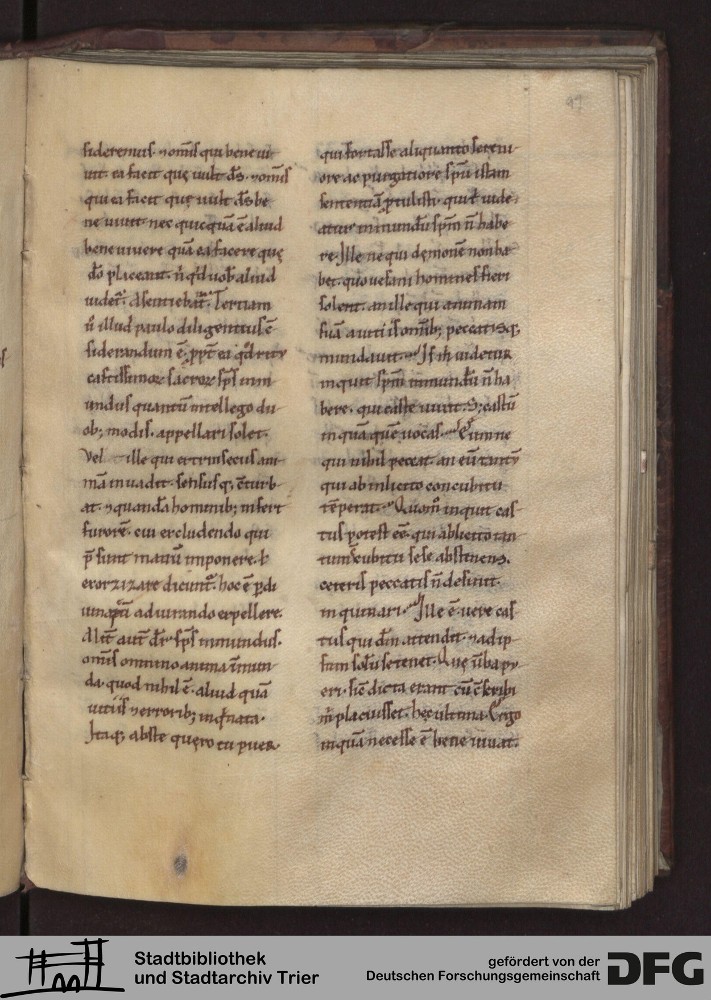 sideremus. ⁊ omīs qui bene ui
uit ea facit quę uult d̄s. ⁊ omīs
qui ea facit quę uult d̄s be
ne uiuit nec quicquā ē aliud
bene uiuere quā ea facere quę
dō placeant. n̄ qd̄ uob̄ aliud
uidet̄. Asentiebāt̄. Tertiam
ů illud paulo diligentius c̄
siderandum ē. ꝓpt̄ ea qđ ritu
castissimoꝝ sacroꝝ sp̄s inm
undus quantū intellego du
ob; modis. appellari solet.
Vel ille qui extrinsecus ani
mā inuadit. sensusq; c̄turb
at. ⁊ quandā hominib; infert
furorē. cui excludendo qui
p̄sunt manū imponere. ł
exorzizare dicunt̄. hoc ē p̄ di
uina eū adiurando expellere.
Alit̄ aut̄ dr̄ sp̄s inmundus.
omīs omnino anima īmun
da. quod nihil ē. aliud quā
uitiis ⁊ errorib; inq̇nata.
Itaq; abste quero tu puer.
qui fortasse aliquanto sereni
ore ac purgatiore sp̄u istam
sententiā ꝓtulisti. quis t̄ uide
atur inmundū sp̄m n̄ habe
re. Ille ne qui dęmonē non ha
bet. quo uesani homines fieri
solent. an ille qui animam
suā a uitiis omīb; peccatisq;
mundauit. Is m̄ uidetur
inquit sp̄m inmundū n̄ ha
bere. qui caste uiuit. S; castū
inquā quē uocas. Eum ne
qui nihil peccat. an eū tantū
qui ab inlicito concubitu
tēperat. Quom̊ inquit cas
tus potest eē. qui ab licito tan
tum c̄cubitu sese abstinens.
ceteris peccatis n̄ desinit
inquinari. Ille ē uere cas
tus qui dm̄ attendit. ⁊ ad ip
sum solū se tenet. Quę ūba pu
eri. sic̄ dicta erant cū c̄scribi
m̄ placuisset. hęc ultima. Ergo
inquā necesse ē bene uiuat.
97
Stadtbibliothek
und Stadtarchiv Trier
gefördert von der
Deutschen Forschungsgemeinschaft
DFG